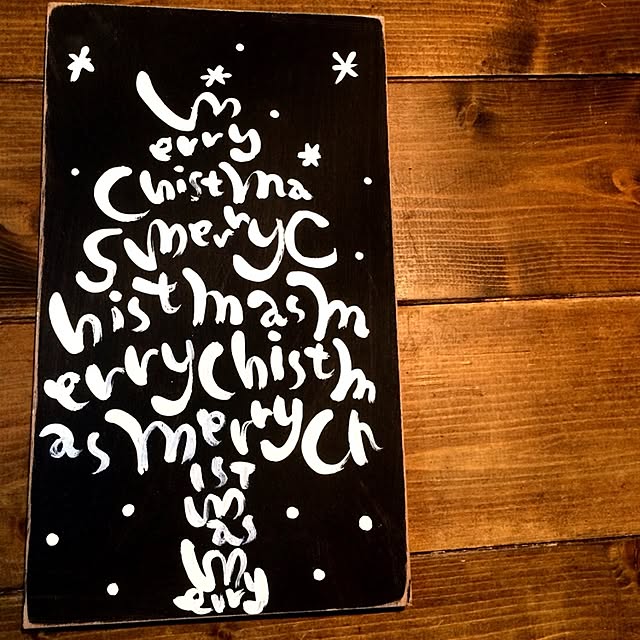 m
erry
Chistma
SmerryC
histmasm
erryChistm
asmerryCh
ist
m
as
m
erry